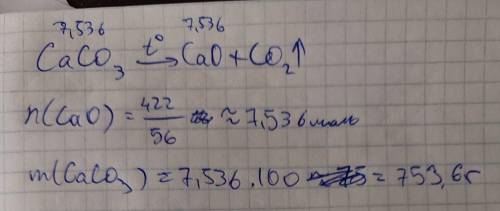 7,536 7,536
CaCO₃ t°→ CaO + CO₂↑
n(CaO) = 422/56 ≈ 7,536 моль
m(CaCO₃) = 7,536 . 100 = 753,6г